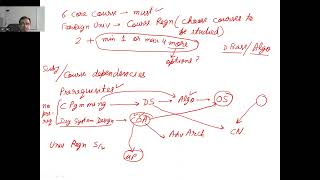 6 core course → must
Foreign Univ → Course Regn (choose courses to be studied)
2 + min 1 or max 4 more
options?
DBase/Algo
Subj/
Course dependencies
Prerequisites
no pre req
C Pgmming → DS → Algo → OS
Dig System Design → COA
CN
Adv Arch
Univ Regn S/w
μP